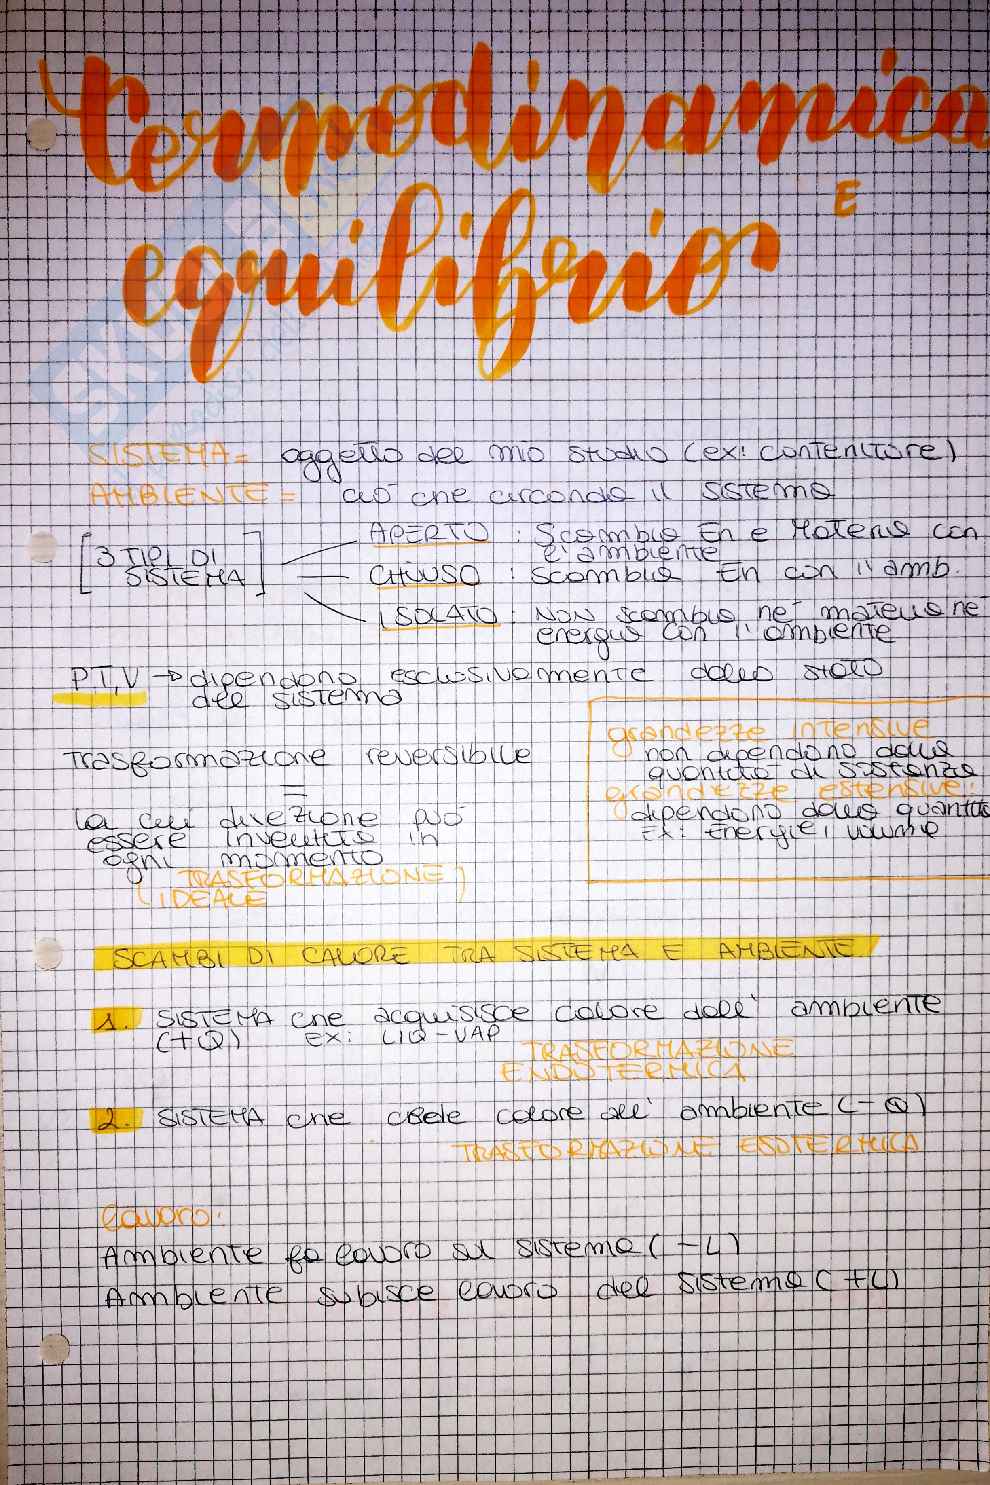 Termodinamica
E
equilibrio
SISTEMA = oggetto del mio studio (ex: contenitore)
AMBIENTE = ciò che circonda il sistema
APERTO : Scambia En e Materia con
l'ambiente
3 TIPI DI
SISTEMA
CHIUSO : Scambia En con l'amb.
ISOLATO : NON scambia né materia né
energia con l'ambiente
P,T,V → dipendono esclusivamente dallo stato
del sistema
grandezze intensive
non dipendono dalla
quantità di sostanza
grandezze estensive:
dipendono dalla quantità
Ex: Energie, volume
Trasformazione reversibile
=
la cui direzione può
essere invertita in
ogni momento
(TRASFORMAZIONE)
(IDEALE
SCAMBI DI CALORE TRA SISTEMA E AMBIENTE
1. SISTEMA che acquisisce calore dall' ambiente
(+Q) Ex: LIQ-VAP
TRASFORMAZIONE
ENDOTERMICA
2. SISTEMA che cede calore all' ambiente (-Q)
TRASFORMAZIONE ESOTERMICA
lavoro:
Ambiente fa lavoro sul sistema (-L)
Ambiente subisce lavoro dal sistema (+L)